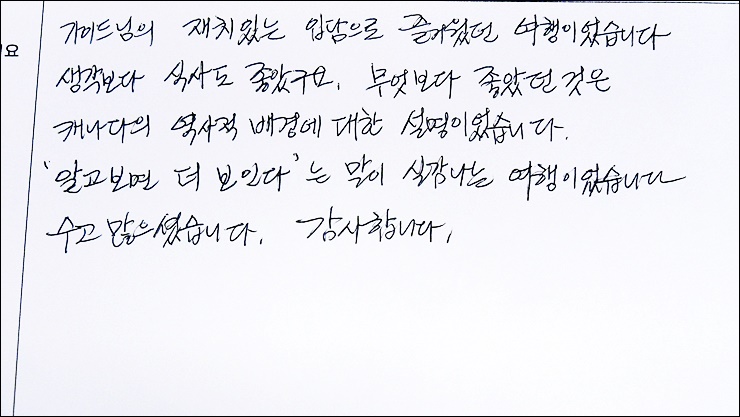 가이드님의 재치있는 입담으로 즐거웠던 여행이었습니다
요
생각보다 식사도 좋았구요. 무엇보다 좋았던 것은
캐나다의 역사적 배경에 대한 설명이었습니다.
'알고보면 더 보인다'는 말이 실감나는 여행이었습니다
수고 많으셨습니다. 감사합니다.